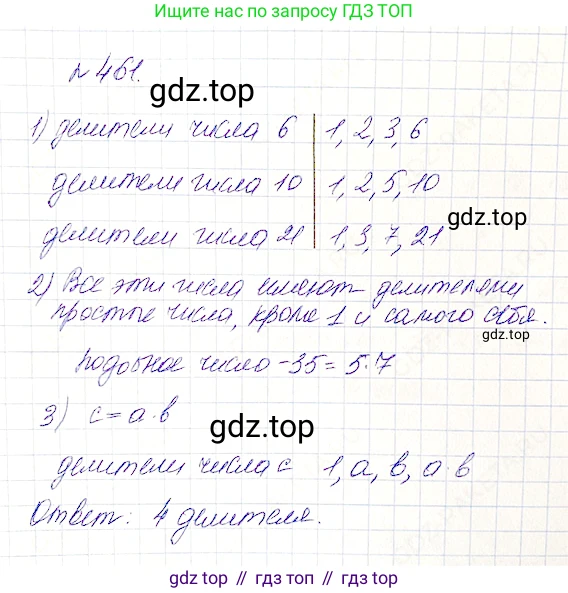 ответы по запросу ГДЗ ТОП
№ 461.
gdz.top
1) делители числа 6 | 1, 2, 3, 6
делители числа 10 | 1, 2, 5, 10
делители числа 21 | 1, 3, 7, 21
gdz.top
2) Все эти числа имеют делителями
простые числа, кроме 1 и самого себя.
gdz.top
Подобное число - 35 = 5·7
3) c = a·b
gdz.top
делители числа c 1, a, b, a·b
Ответ: 4 делителя.
gdz top // гдз топ // gdz.top